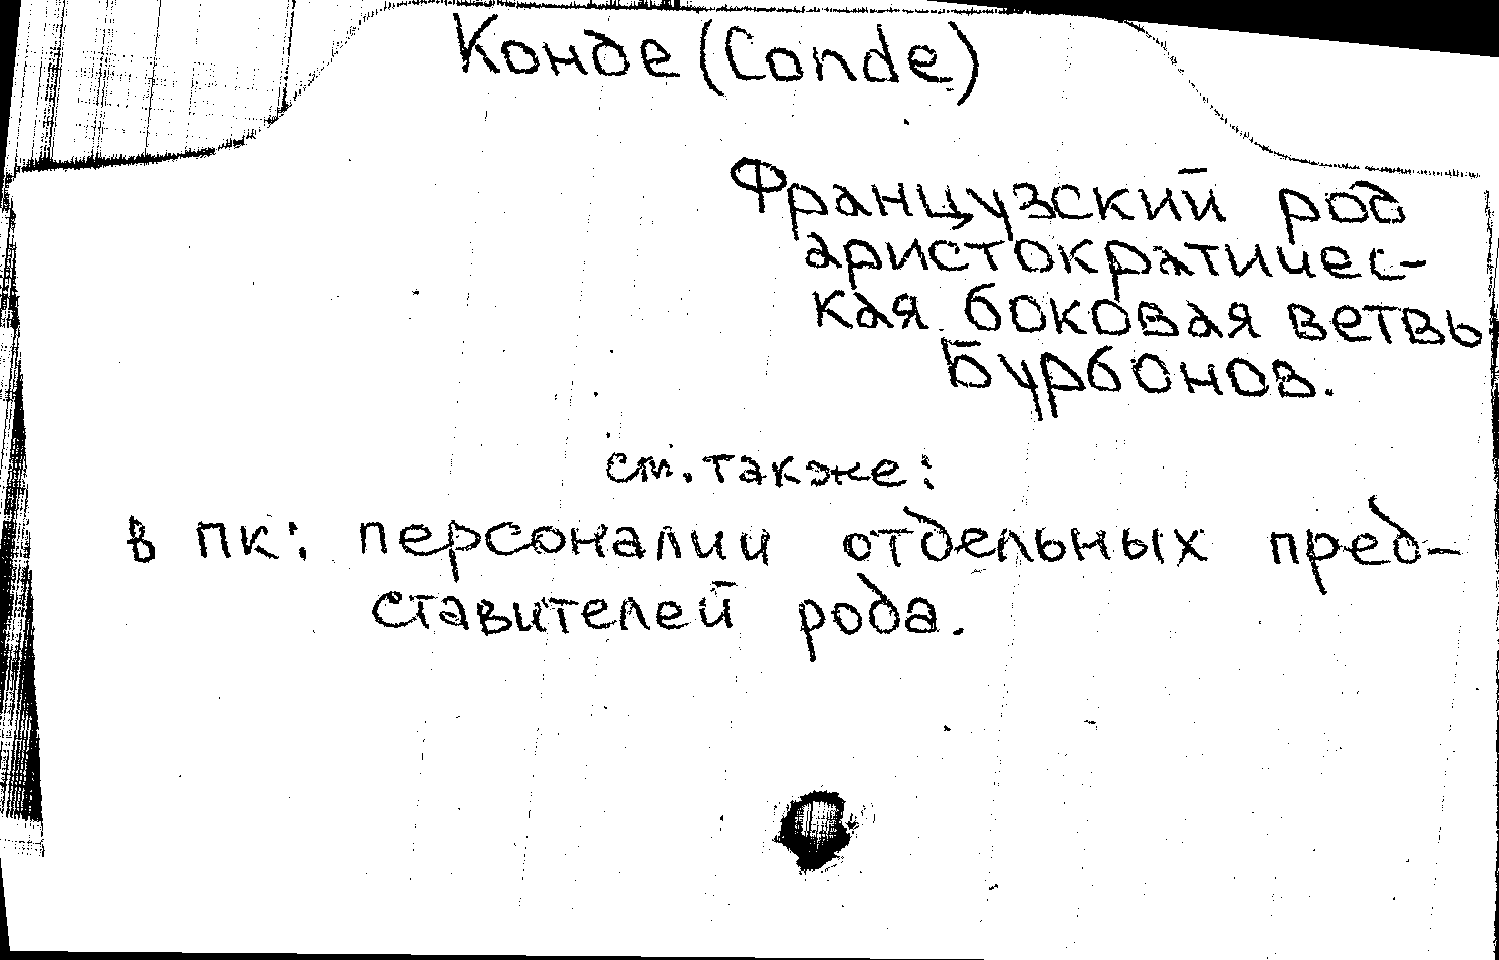 Конде (Conde)
Французский род
аристократичес-
кая боковая ветвь
Бурбонов.
см. также:
в ПК: персоналии отдельных пред-
ставителей рода.